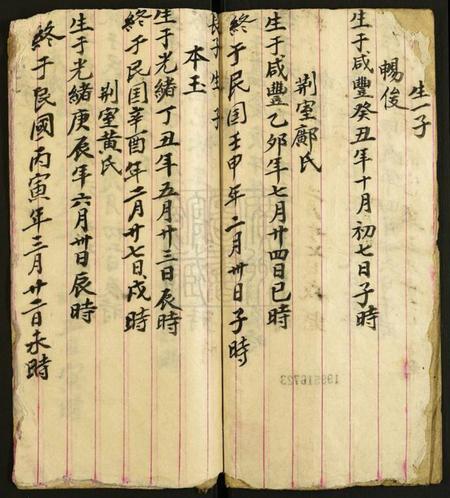 生一子
暢俊
生于咸豐癸丑年十月初七日子時
荆室鄺氏
生于咸豐乙夘年七月廿四日巳時
終于民国壬甲年二月卅日子時
長子生子
本玉
生于光緒丁丑年五月廿三日辰時
終于民国辛酉年二月廿七日戍時
荆室黄氏
生于光緒庚辰年六月卅日辰時
終于民國丙寅年三月廿二日未時
199516723